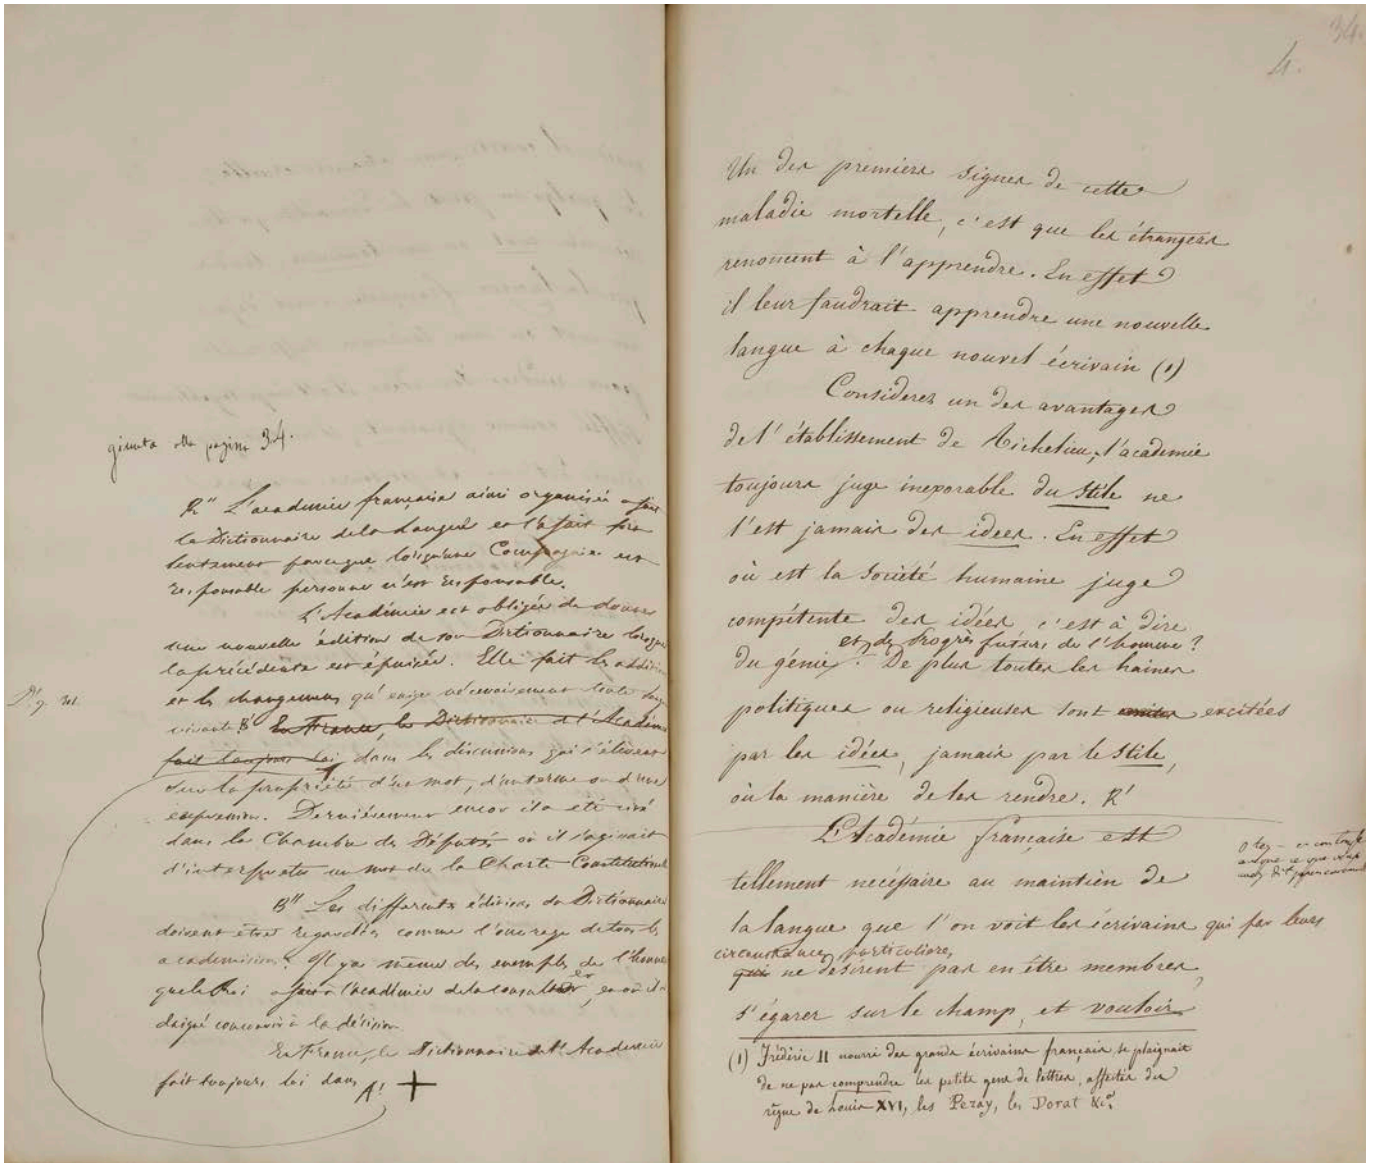 giunta alla pagina 34.
R" L'académie française ainsi organisée a fait
le Dictionnaire de la Langue et l'a fait fort
lentement parceque lorsqu'une Compagnie est
responsable personne n'est responsable.
L'Académie est obligée de donner
une nouvelle édition de son Dictionnaire lorsque
la précédente est épuisée. Elle fait les additions
et les changemens qu'exige nécessairement toute langue
vivante B' En France, le Dictionnaire de l'Académie
fait toujours loi dans les discussions qui s'élèvent
sur la propriété d'un mot, d'un terme ou d'une
expression. Dernièrement encor il a été cité
dans la Chambre des Députés où il s'agissait
d'interpreter un mot de la Charte Constitutionnelle
B" Les differentes édivions du Dictionnaire
doivent être regardées comme l'ouvrage de tous les
academiciens. Il y a même des exemples de l'honneur
que le Roi a fait à l'académie de la consulter, et où il a
daigné concourir à la décision.
En France, le Dictionnaire de l'Academie
fait toujours loi dans A! +
34.
4.
Un des premiers signes de cette
maladie mortelle, c'est que les étrangers
renoncent à l'apprendre. En effet
il leur faudrait apprendre une nouvelle
langue à chaque nouvel écrivain (1)
Considerez un des avantages
de l'établissement de Richelieu, l'académie
toujours juge inexorable du stile ne
l'est jamais des idées. En effet
où est la société humaine juge
compétente des idées, c'est à dire
et des Progrès futurs de l'homme?
du génie. De plus toutes les haines
politiques ou religieuses sont excitées
par les idées, jamais par le stile,
où la manière de les rendre. R'
L'Académie française est
tellement necéssaire au maintien de
la langue que l'on voit les écrivains qui par leurs
circonstances particulieres
qui ne desirent pas en être membres,
s'égarer sur le champ, et vouloir
(1) Frédéric II nourri des grands écrivains français se plaignait
de ne pas comprendre les petits gens de lettres, affectés du
règne de Louis XVI, les Pezay, les Dorat &c.